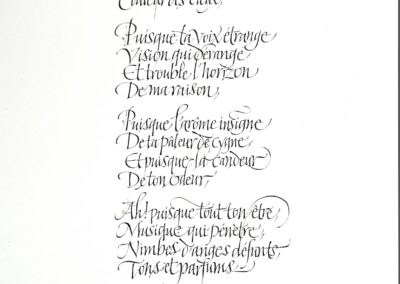 Couleur des cieux,
Puisque ta voix étrange
Vision qui dérange
Et trouble l'horizon
De ma raison,
Puisque l'arôme insigne
De ta pâleur de cygne
Et puisque la candeur
De ton odeur,
Ah! puisque tout ton être,
Musique qui pénètre,
Nimbes d'anges défunts,
Tons et parfums